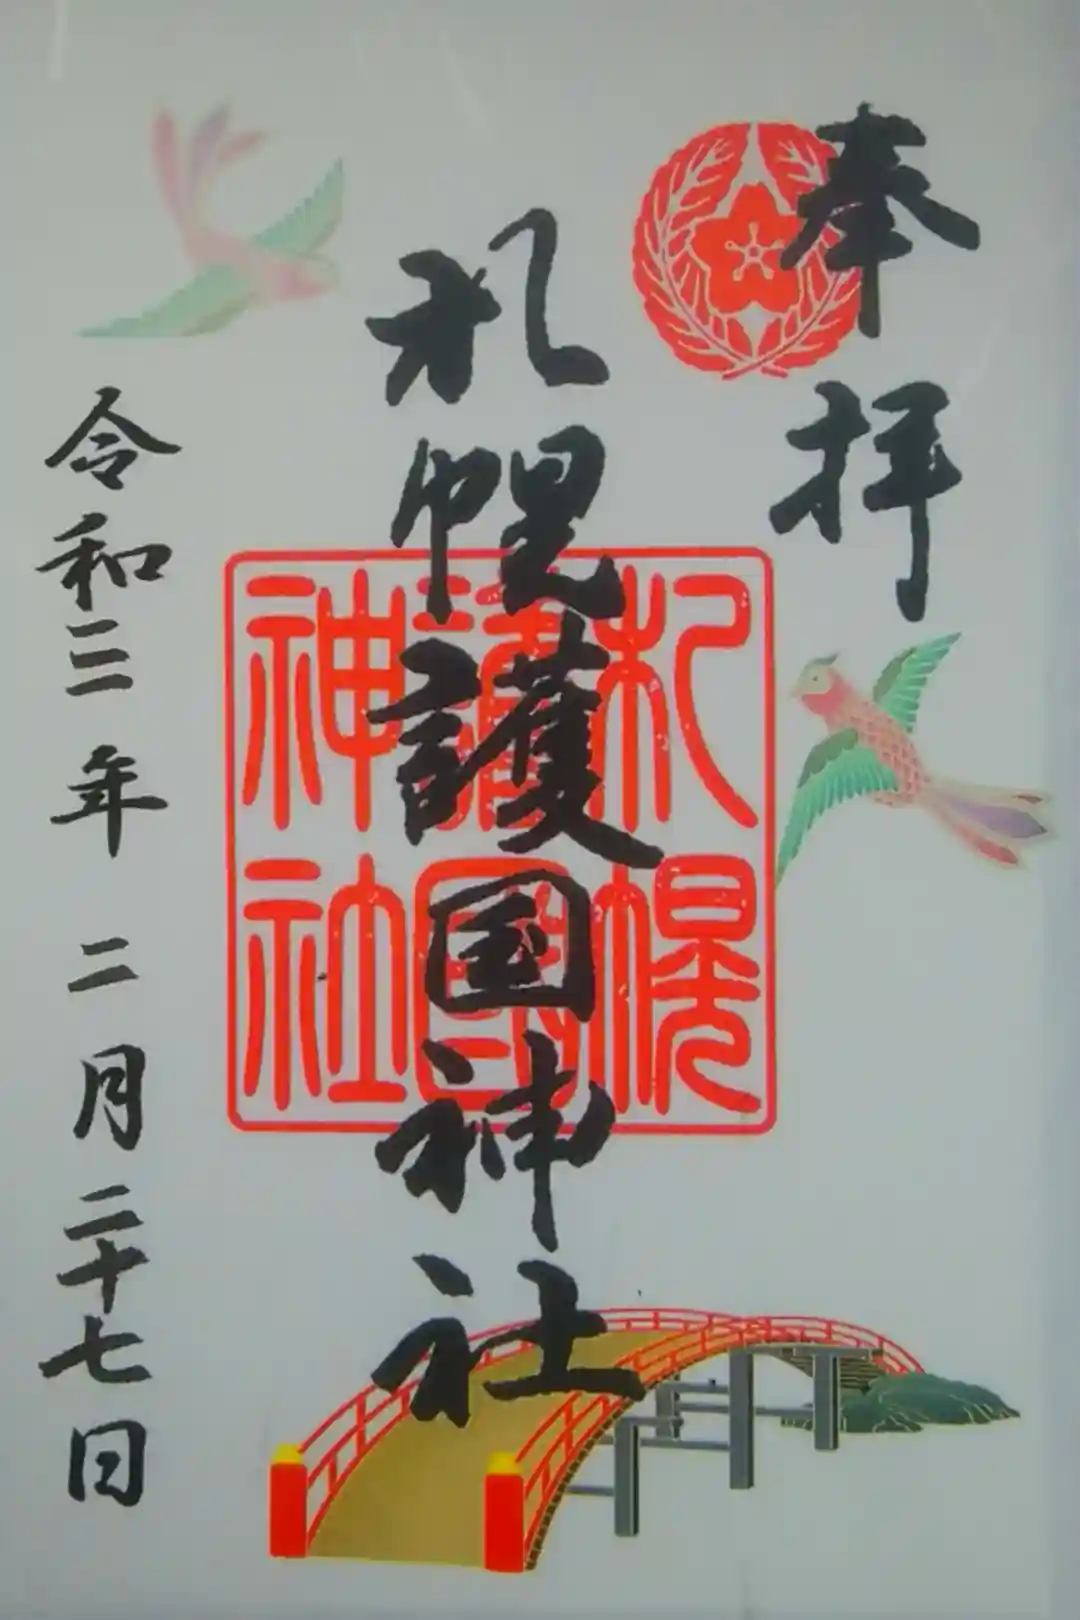 奉拝
札幌護国神社
令和三年二月二十七日
札幌
護國
神社